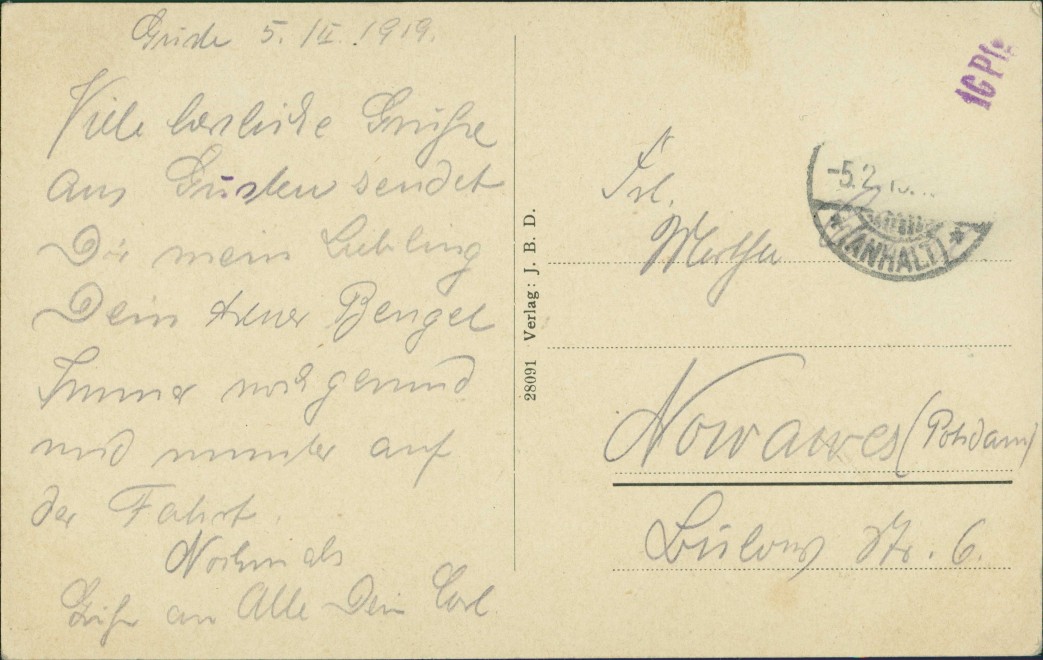 5. II. 1919.
Viele herzliche Grüße
aus Güsten sendet
Dir mein Liebling
Dein treuer Bengel
Immer noch gesund
und munter auf
der Fahrt.
Nochmals
Grüße an Alle Dein Carl
28091 Verlag: J. B. D.
10 Pf.
-5.2.
(ANHALT)
Frl.
Martha
Nowawes (Potsdam)
Bülow Str. 6.